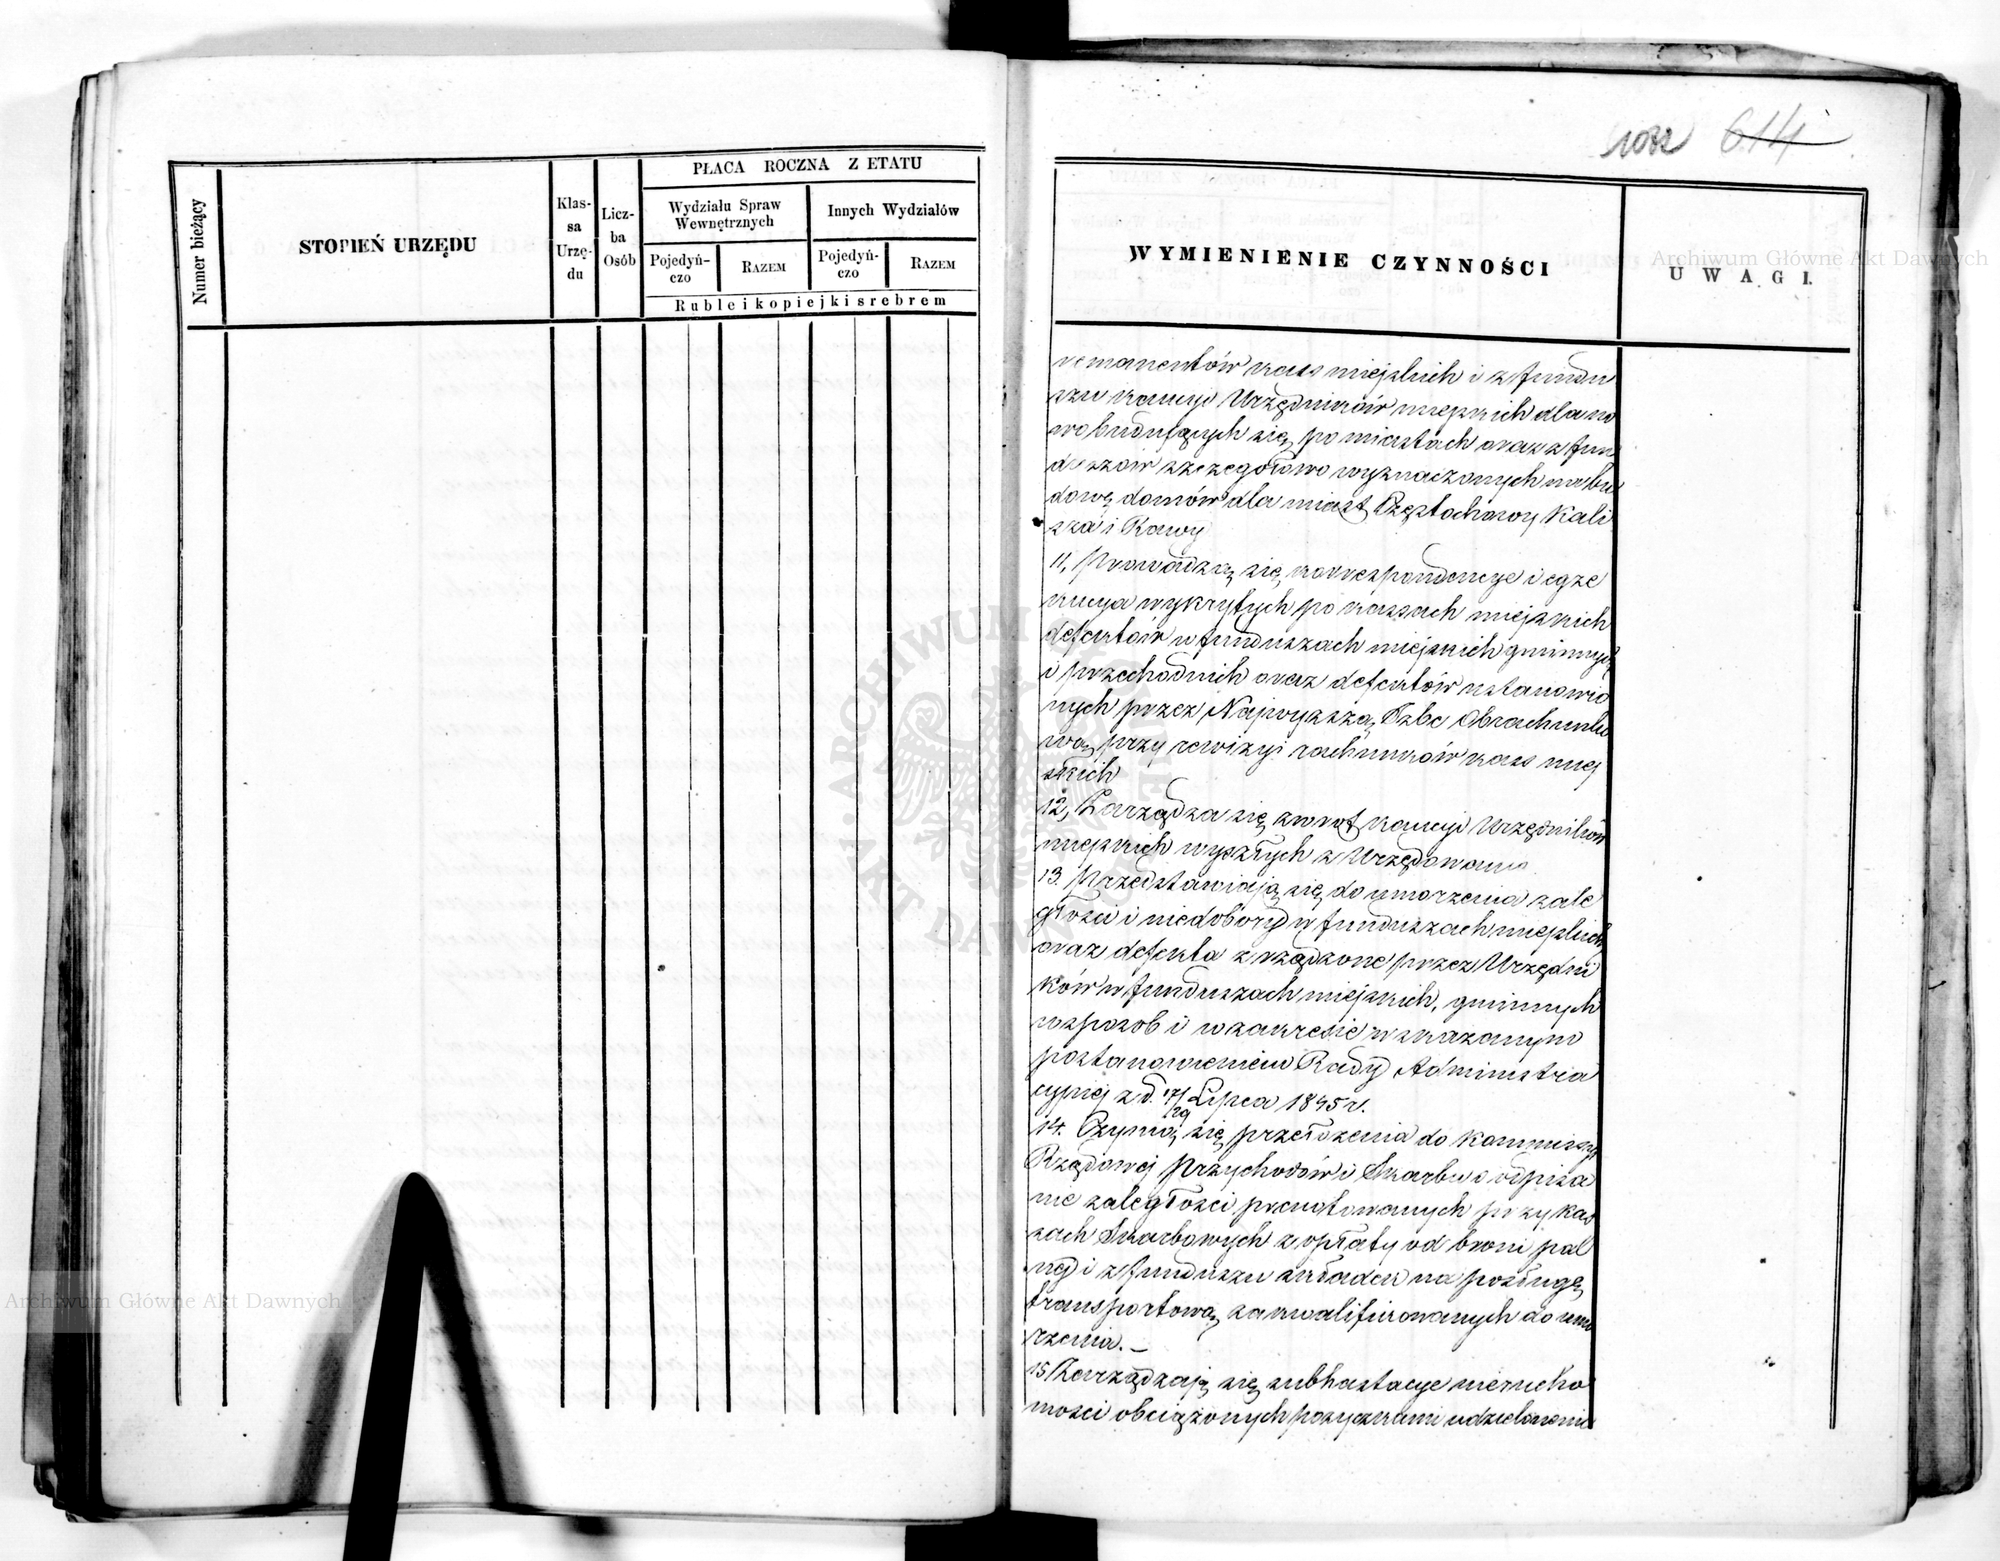 Numer bieżący
STOPIEŃ URZĘDU
Klas-
sa
Urzę-
du
Licz-
ba
Osób
PŁACA ROCZNA Z ETATU
Wydziału Spraw
Wewnętrznych
Innych Wydziałów
Pojedyń-
czo
RAZEM
Pojedyń-
czo
RAZEM
Ruble i kopiejki srebrem
614
WYMIENIENIE CZYNNOŚCI
UWAGI.
remanentów kass miejskich i z fundu
szu kaucyi Urzędników miejskich dla no
wobudujących się po miastach oraz z fun
duszów szczegółowo wyznaczonych na bu
dowę domów dla miast Częstochowy Kali
sza i Rawy
11, Prowadzą się korrespondencye i egze
kucya wykrytych po kassach miejskich
defektów w funduszach miejskich gminnych
i przechodnich oraz defektów ustanowio
nych przez Najwyższą Izbę Obrachunko
wą przy rewizyi rachunków kass miej
skich
12, Zarządza się zwrot kaucyi Urzędników
miejskich wyszłych z Urzędowania
13. Przedstawiają się do umorzenia zale
głości i niedobory w funduszach miejskich
oraz defekta zrządzone przez Urzędni
ków w funduszach miejskich, gminnych
w sposób i w zakresie wskazanym
postanowieniem Rady Administra
cyjnej z d. 17/29 Lipca 1845 r.
14. Czynią się przełożenia do Kommissyi
Rządowej Przychodów i Skarbu o odpisa
nie zaległości prenotowanych przy Kas
sach Skarbowych z opłaty od broni pal
nej i z funduszu składek na posługę
transportową zakwalifikowanych do umo
rzenia. –
15 Zarządzają się subhastacye nierucho
mości obciążonych pożyczkami udzielonemi
Archiwum Główne Akt Dawnych
Archiwum Główne Akt Dawnych
ARCHIWUM
AKT DAWNYCH